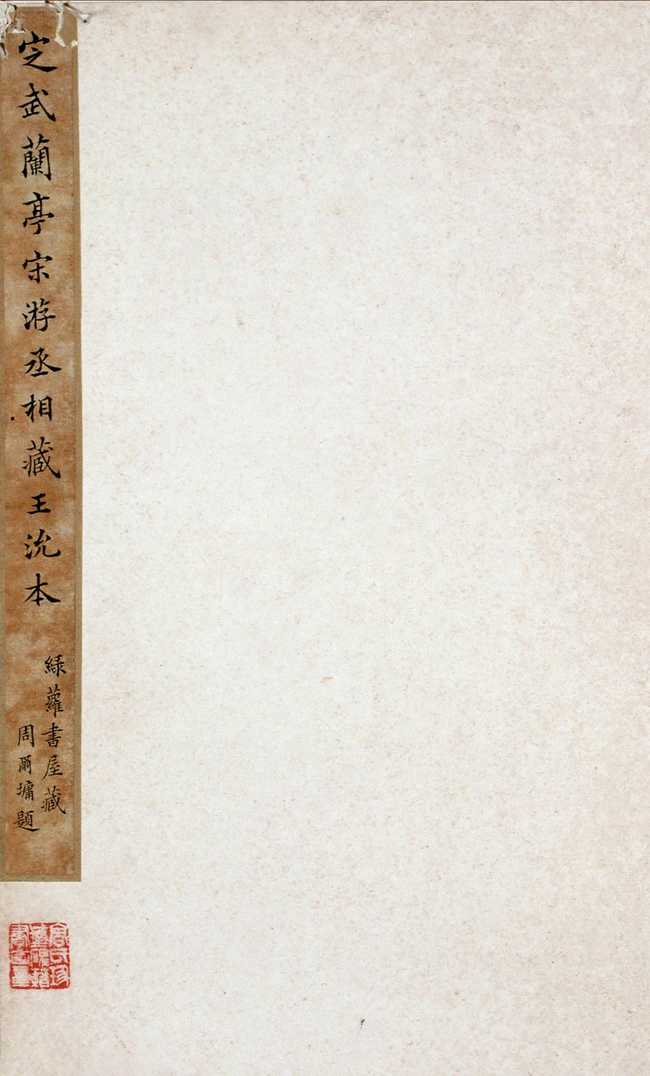 定武蘭亭宋游丞相藏王沇本
綠蘿書屋藏
周爾墉題